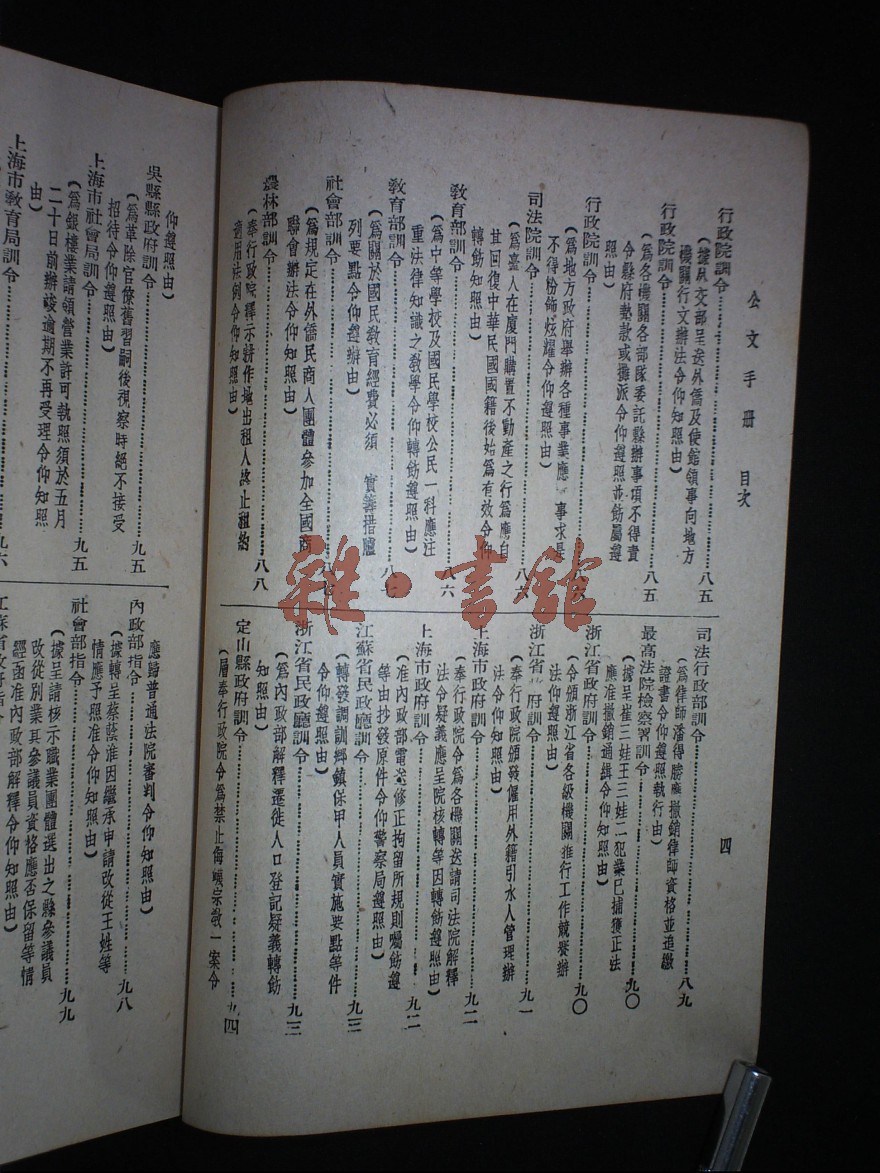 公文手冊 目次
四
行政院訓令……八五
(據外交部呈送外僑及使館領事向地方
機關行文辦法令仰知照由)
行政院訓令……八五
(爲各機關各部隊委託縣辦事項不得責
令縣府墊款或攤派令仰遵照並飭屬遵
照由)
行政院訓令……八六
(爲地方政府舉辦各種事業應 事求是
不得粉飾炫耀令仰遵照由)
司法院訓令……八六
(爲臺人在廈門購置不動產之行爲應自
其回復中華民國國籍後始爲有效令仰
轉飭知照由)
教育部訓令……八六
(爲中等學校及國民學校公民一科應注
重法律知識之教學令仰轉飭遵照由)
教育部訓令……八七
(爲關於國民教育經費必須 實籌措臚
列要點令仰遵辦由)
社會部訓令……八七
(爲規定在外僑民商人團體參加全國商
聯會辦法令仰知照由)
農林部訓令……八八
(奉行政院釋示耕作地出租人終止租約
適用法例令仰知照由)
司法行政部訓令……八九
(爲律師潘得勝應撤銷律師資格並追繳
證書令仰遵照執行由)
最高法院檢察署訓令……九〇
(據呈崔三娃王三娃二犯業已捕獲正法
應准撤銷通緝令仰知照由)
浙江省政府訓令……九〇
(令頒浙江省各級機關推行工作競賽辦
法仰遵照由)
浙江省 府訓令……九一
(奉行政院頒發僱用外籍引水人管理辦
法令仰知照由)
上海市政府訓令……九二
奉行政院令爲各機關送請司法院解釋
法令疑義應呈院核轉等因轉飭遵照由)
上海市政府訓令……九二
(准內政部電送修正拘留所規則囑飭遵
等由抄發原件令仰警察局遵照由)
江蘇省民政廳訓令……九三
(轉發調訓鄉鎮保甲人員實施要點等件
令仰遵照由)
浙江省民政廳訓令……九三
(爲內政部解釋遷徙人口登記疑義轉飭
知照由)
定山縣政府訓令……九四
(層奉行政院令爲禁止侮 宗教一案令
仰遵照由)
吳縣縣政府訓令……九五
(爲革除官僚舊習嗣後視察時絕不接受
招待令仰遵照由)
上海市社會局訓令……九五
(爲銀樓業請領營業許可執照須於五月
二十日前辦竣逾期不再受理令仰知照
由)
上海市教育局訓令……九六
應歸普通法院審判令仰知照由)
內政部指令……九八
(據轉呈蔡蔭淮因繼承申請改從王姓等
情應予照准令仰知照由)
社會部指令……九九
(據呈請核示職業團體選出之縣參議員
改從別業其參議員資格應否保留等情
經函准內政部解釋令仰知照由)
江蘇省政府指令
雜·書館